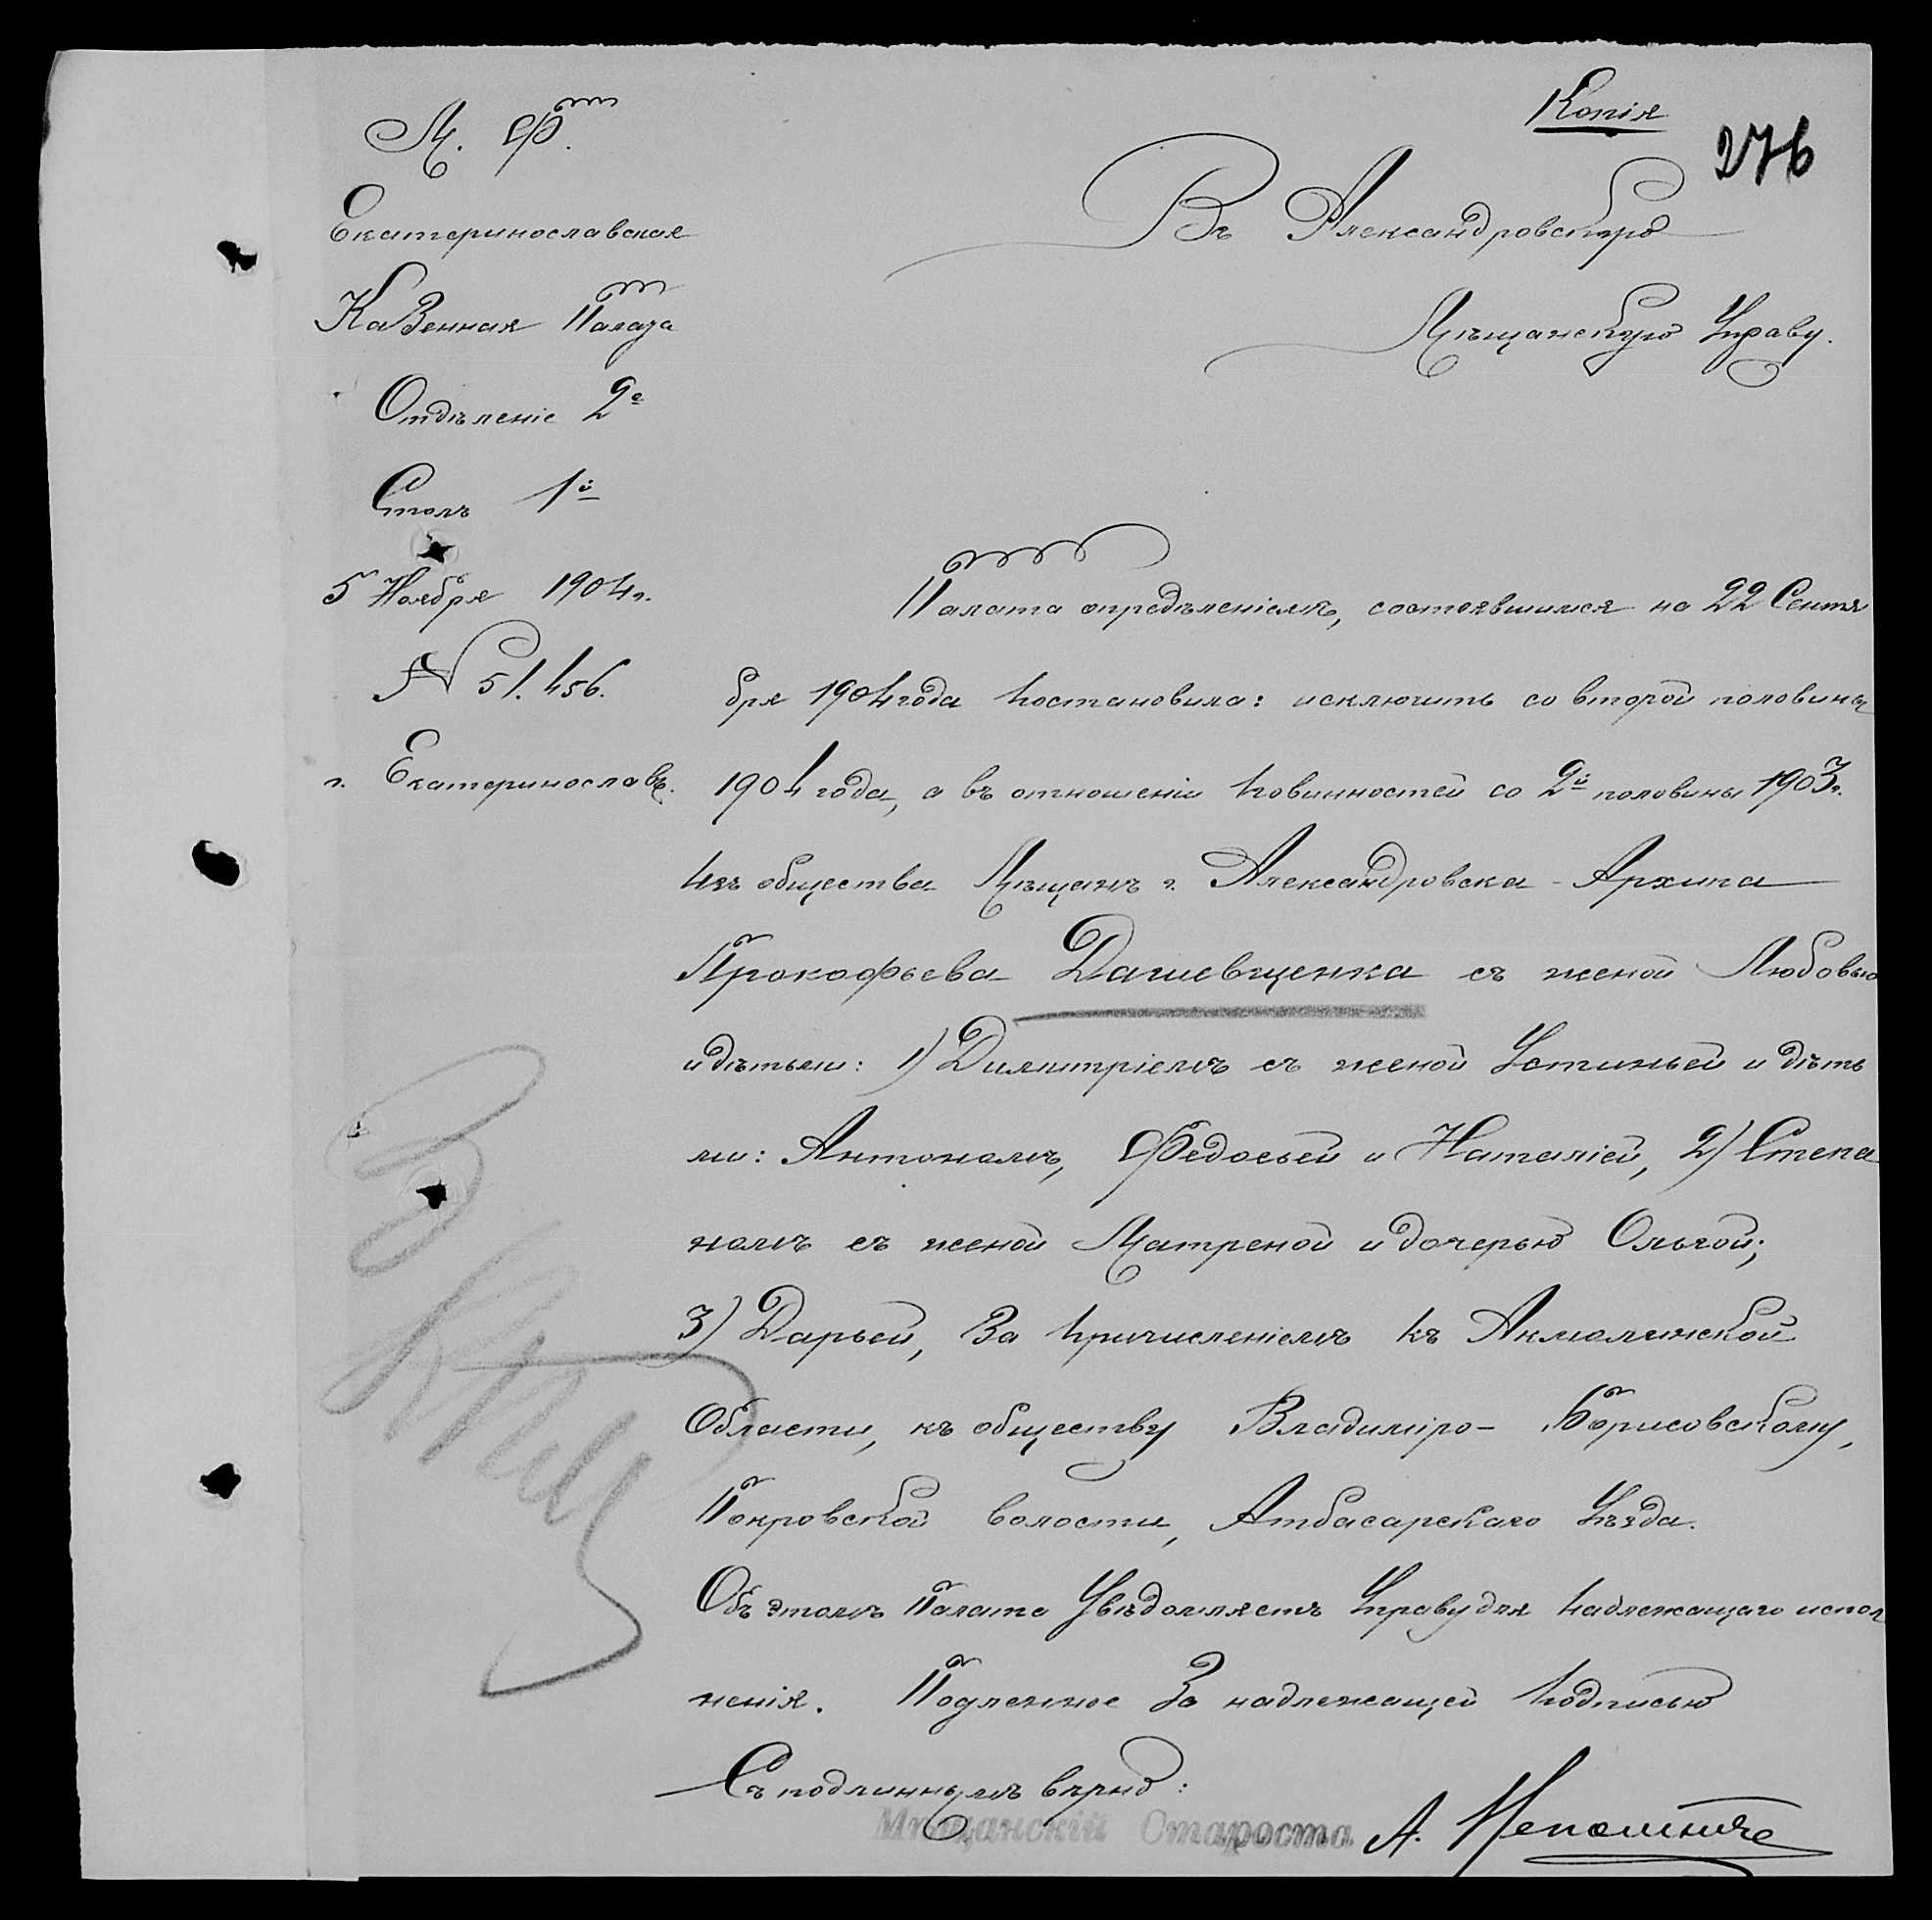 Копія
276
М. Ф.
Екатеринославская
Казенная Палата
Отдѣленіе 2е
Столъ 1й
5 Ноября 1904 г.
№ 51.456.
г. Екатеринославъ.
Въ Александровскую
Мѣщанскую Управу.
Палата опредѣленіемъ, состоявшимся на 22 Сентя
бря 1904 года постановила: исключить со второй половины
1904 года, а въ отношеніи повинностей со 2й половины 1903 г.
изъ общества Мѣщанъ г. Александровска - Архипа
Прокофьева Дашевщенка съ женой Любовью
и дѣтьми: 1) Димитріемъ съ женой Устиньей и дѣть
ми: Антономъ, Федосьей и Наталіей, 2) Степа
номъ съ женой Матреной и дочерью Ольгой;
3) Дарьей, за причисленіемъ къ Акмолинской
Области, къ обществу Владиміро- Борисовскому,
Покровской волости, Атбасарскаго Уѣзда.
Объ этомъ Палата Увѣдомляетъ Управу для надлежащаго испол
ненія. Подленное За надлежащей подписью
Съ подлиннымъ вѣрно:
Мѣщанскій Староста А.